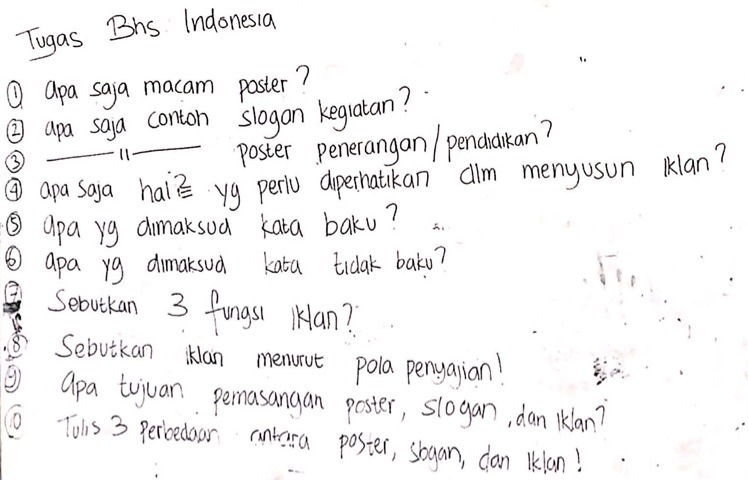 Tugas Bhs Indonesia
① apa saja macam poster?
② apa saja contoh slogan kegiatan?
③ ——— 11 ——— poster penerangan/pendidikan?
④ apa saja hal2 yg perlu diperhatikan dlm menyusun iklan?
⑤ apa yg dimaksud kata baku?
⑥ apa yg dimaksud kata tidak baku?
⑦ Sebutkan 3 fungsi iklan?
⑧ Sebutkan iklan menurut pola penyajian!
⑨ apa tujuan pemasangan poster, slogan, dan iklan?
⑩ Tulis 3 perbedaan antara poster, slogan, dan iklan!